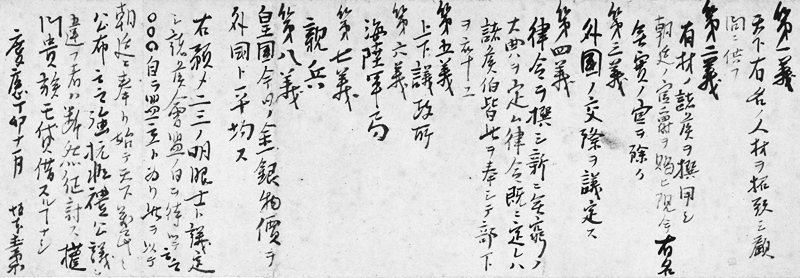 第一義
天下有名ノ人材ヲ招致シ顧
問ニ供フ
第二義
有材ノ諸侯ヲ撰用シ
朝廷ノ官爵ヲ賜ヒ現今有名
無實ノ官ヲ除ク
第三義
外国ノ交際ヲ議定ス
第四義
律令ヲ撰シ新ニ無窮ノ
大典ヲ定ム律令既ニ定レハ
諸侯伯皆此ヲ奉シテ部下
ヲ率ユ
第五義
上下議政所
第六義
海陸軍局
第七義
親兵
第八義
皇国今日ノ金銀物價ヲ
外國ト平均ス
右預メ二三ノ明眼士ト議定
シ諸侯會盟ノ日ヲ待ツテ云云
○○○自ラ盟主ト為リ此ヲ以テ
朝廷ニ奉リ始テ天下萬民ニ
公布云云強抗非禮公議ニ
違フ者ハ断然征討ス權
門貴族モ貸借スルヿナシ
慶應丁卯十一月 坂本直柔